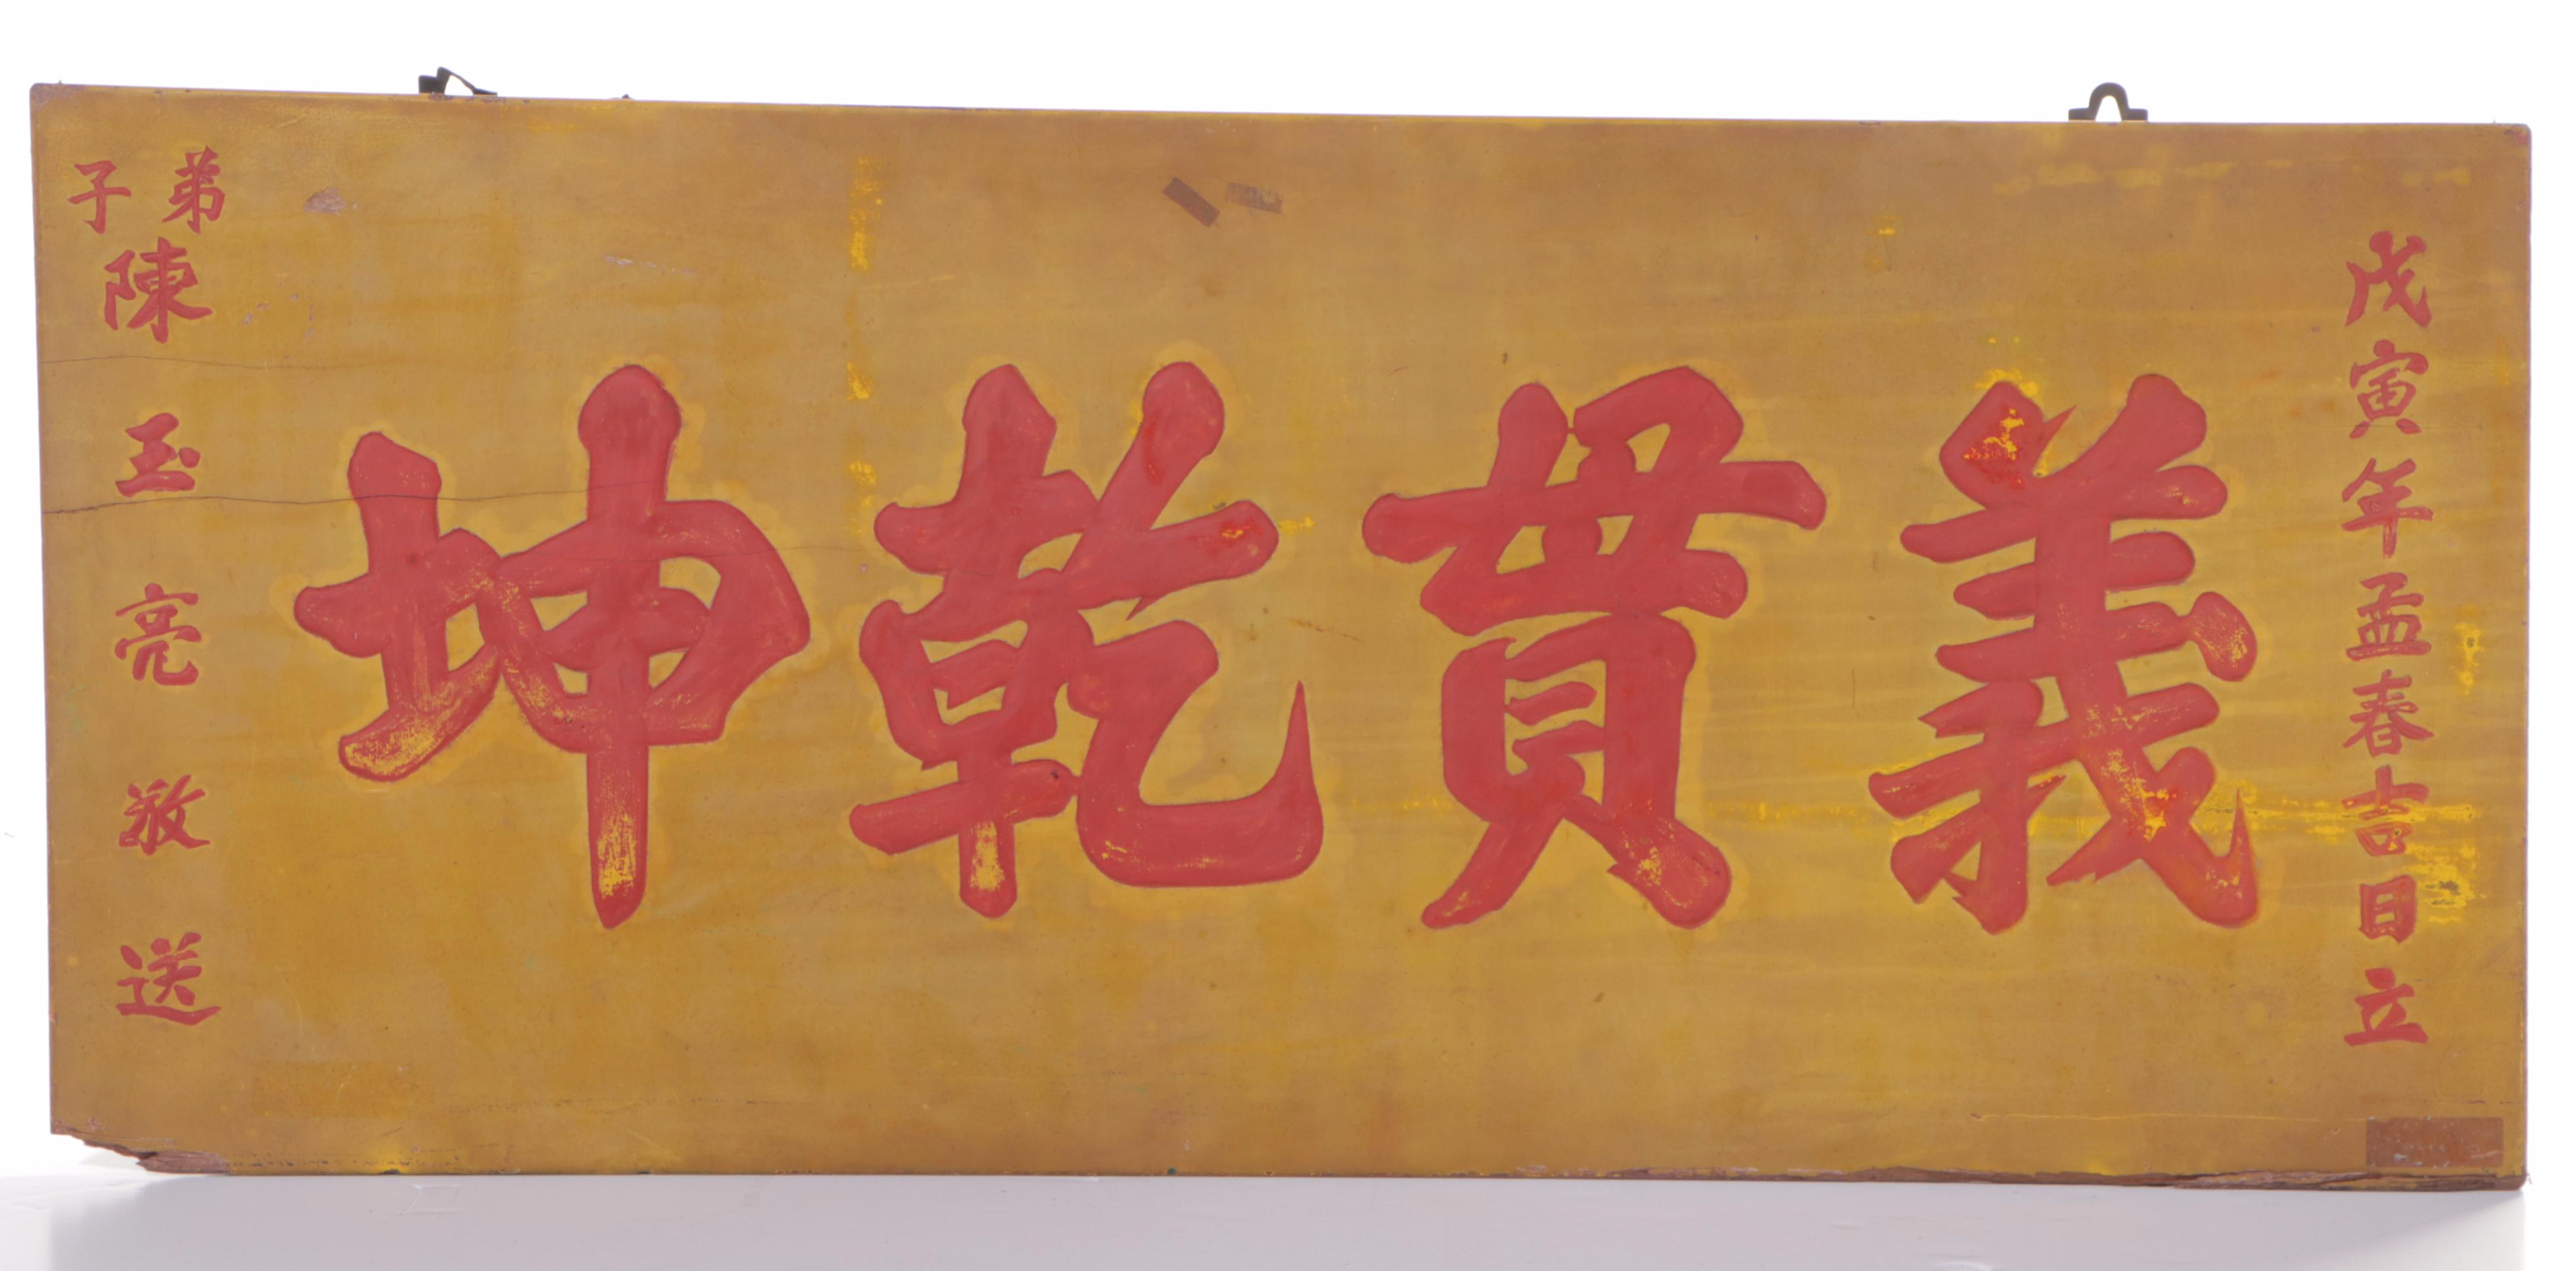 戊寅年孟春吉日立
義貫乾坤
弟子陳玉亮敬送